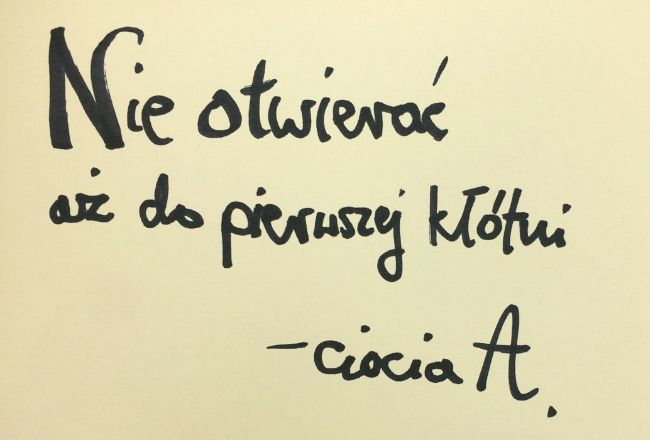 Nie otwierać
aż do pierwszej kłótni
– ciocia A.